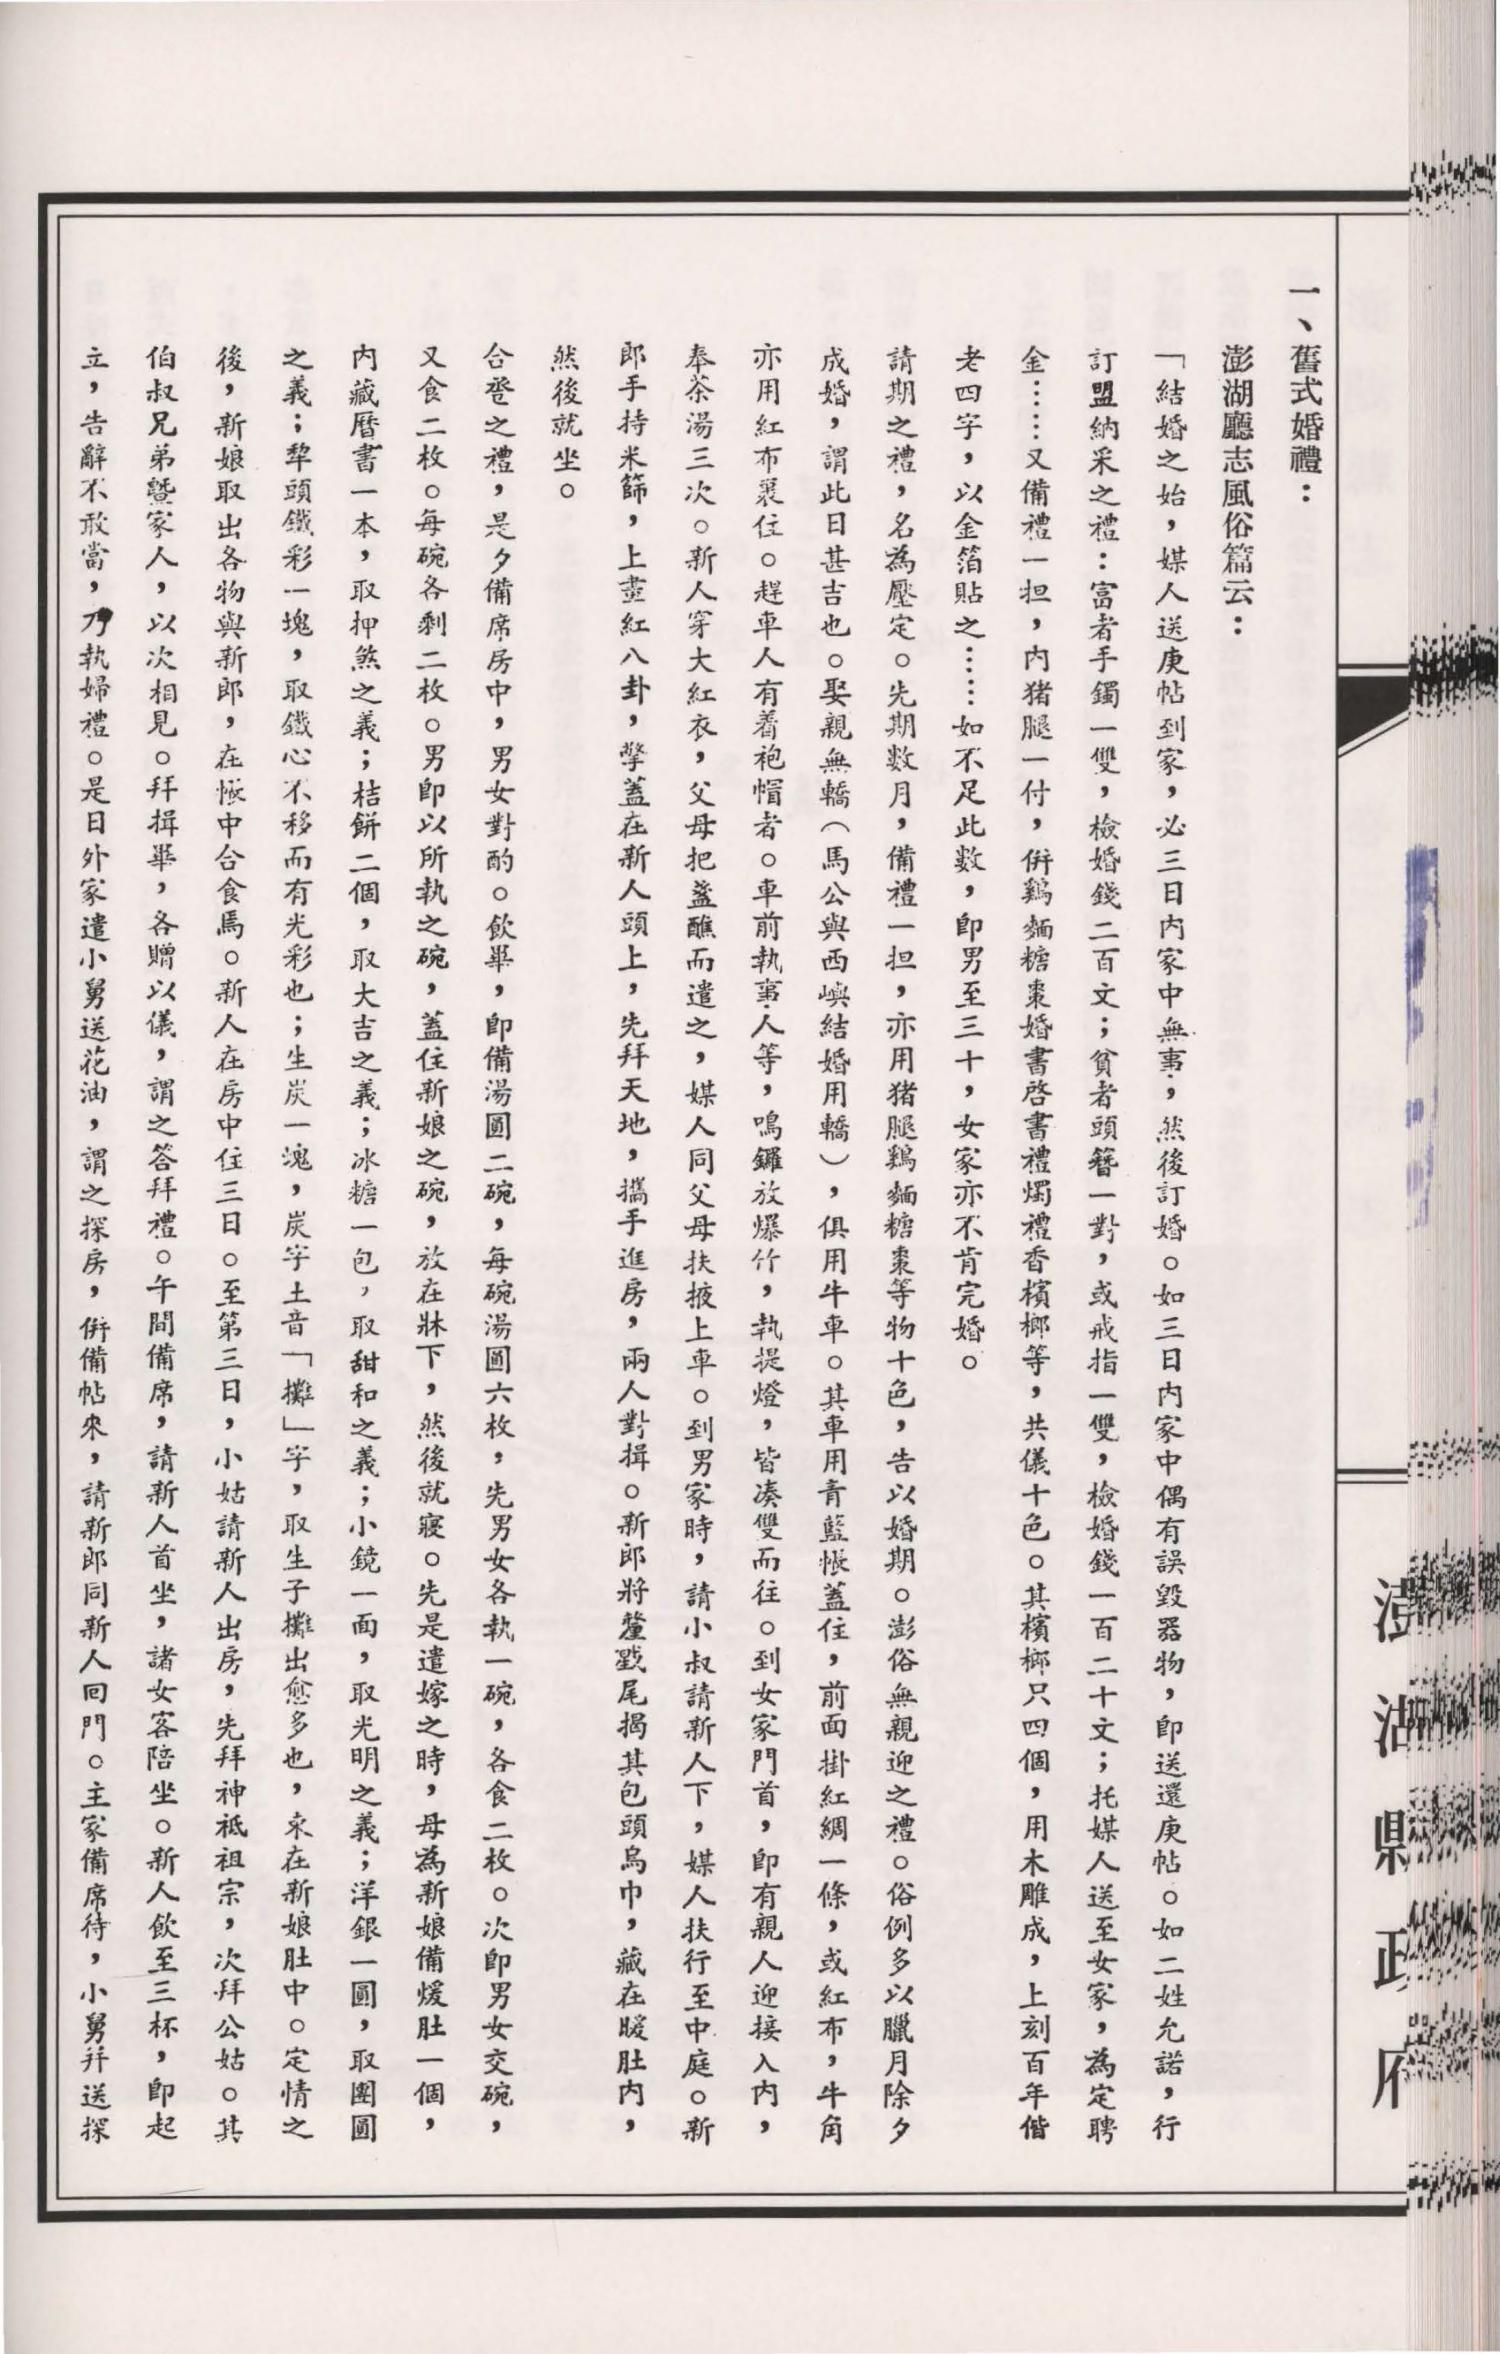 一、舊式婚禮：
澎湖廳志風俗篇云：
「結婚之始，媒人送庚帖到家，必三日內家中無事，然後訂婚。如三日內家中偶有誤毀器物，即送還庚帖。如二姓允諾，行
訂盟納采之禮：富者手鐲一雙，檢婚錢二百文；貧者頭簪一對，或戒指一雙，檢婚錢一百二十文；托媒人送至女家，為定聘
金……又備禮一担，內猪腿一付，併鷄麵糖棗婚書啓書禮燭禮香檳榔等，共儀十色。其檳榔只四個，用木雕成，上刻百年偕
老四字，以金箔貼之……如不足此數，即男至三十，女家亦不肯完婚。
請期之禮，名為壓定。先期數月，備禮一担，亦用猪腿鷄麵糖棗等物十色，告以婚期。澎俗無親迎之禮。俗例多以臘月除夕
成婚，謂此日甚吉也。娶親無轎（馬公與西嶼結婚用轎），俱用牛車。其車用青藍帳蓋住，前面掛紅綢一條，或紅布，牛角
亦用紅布裹住。趕車人有着袍帽者。車前執事人等，鳴鑼放爆竹，執提燈，皆湊雙而往。到女家門首，即有親人迎接入內，
奉茶湯三次。新人穿大紅衣，父母把盞醮而遣之，媒人同父母扶掖上車。到男家時，請小叔請新人下，媒人扶行至中庭。新
郎手持米篩，上畫紅八卦，擎蓋在新人頭上，先拜天地，攜手進房，兩人對揖。新郎將釐戥尾揭其包頭烏巾，藏在暖肚內，
然後就坐。
合卺之禮，是夕備席房中，男女對酌。飲畢，即備湯圓二碗，每碗湯圓六枚，先男女各執一碗，各食二枚。次即男女交碗，
又食二枚。每碗各剩二枚。男即以所執之碗，蓋住新娘之碗，放在牀下，然後就寢。先是遣嫁之時，母為新娘備煖肚一個，
內藏曆書一本，取押煞之義；桔餅二個，取大吉之義；冰糖一包，取甜和之義；小鏡一面，取光明之義；洋銀一圓，取團圓
之義；犂頭鐵彩一塊，取鐵心不移而有光彩也；生炭一塊，炭字土音「攤」字，取生子攤出愈多也，束在新娘肚中。定情之
後，新娘取出各物與新郎，在帳中合食焉。新人在房中住三日。至第三日，小姑請新人出房，先拜神祇祖宗，次拜公姑。其
伯叔兄弟暨家人，以次相見。拜揖畢，各贈以儀，謂之答拜禮。午間備席，請新人首坐，諸女客陪坐。新人飲至三杯，即起
立，告辭不敢當，乃執婦禮。是日外家遣小舅送花油，謂之探房，併備帖來，請新郎同新人回門。主家備席待，小舅并送探
澎湖縣政府